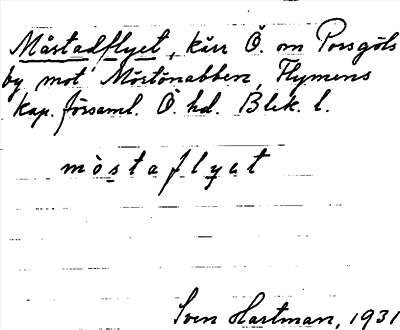 Måstadflyet, kärr Ö. om Porsgöls
by mot Möstönabben, Flymens
kap. församl. Ö. hd. Blek. l.
mòstaflyet
Sven Hartman, 1931